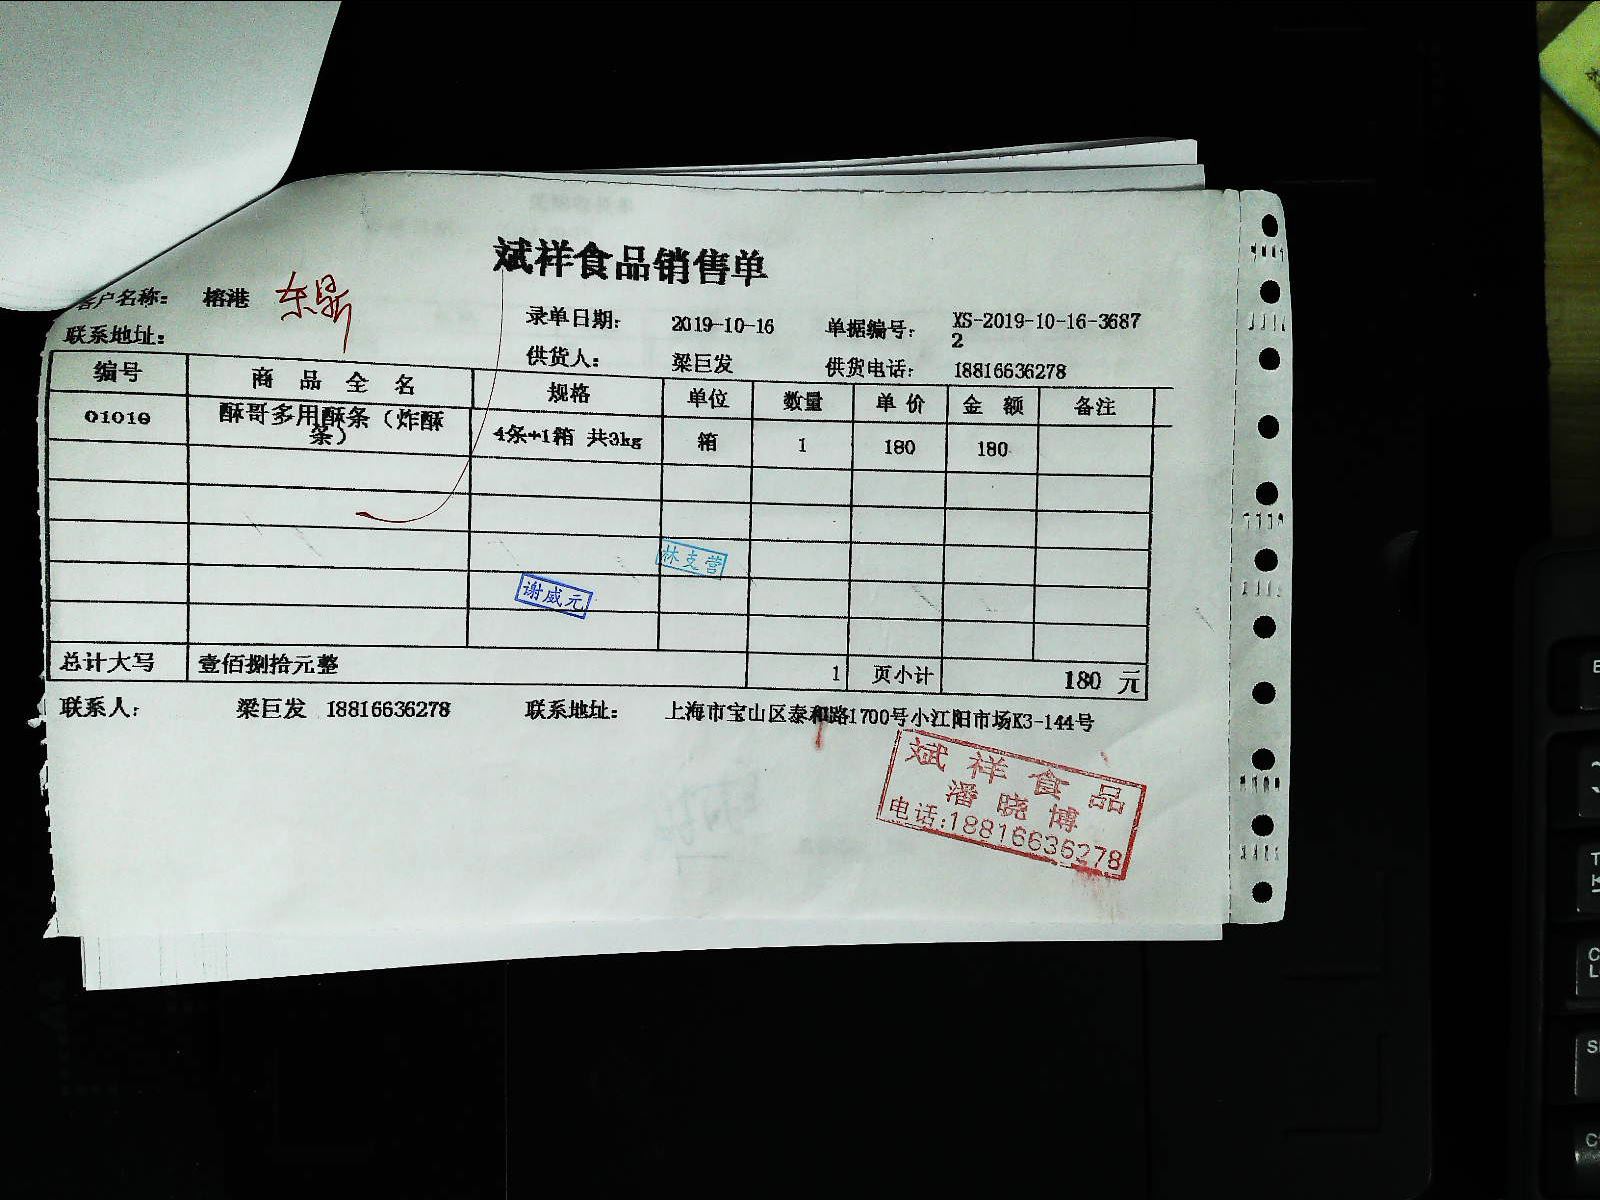 斌祥食品销售单
客户名称： 榕港 东鼎
录单日期： 2019-10-16 单据编号： XS-2019-10-16-3687
2
联系地址：
供货人： 梁巨发 供货电话： 18816636278
编号 商品全名 规格 单位 数量 单价 金额 备注
01010 酥哥多用酥条（炸酥
条） 4条+1箱 共3kg 箱 1 180 180
林支营
谢威元
总计大写 壹佰捌拾元整 1 页小计 180 元
联系人： 梁巨发 18816636278 联系地址： 上海市宝山区泰和路1700号小江阳市场K3-144号
斌祥食品
潘晓博
电话:18816636278